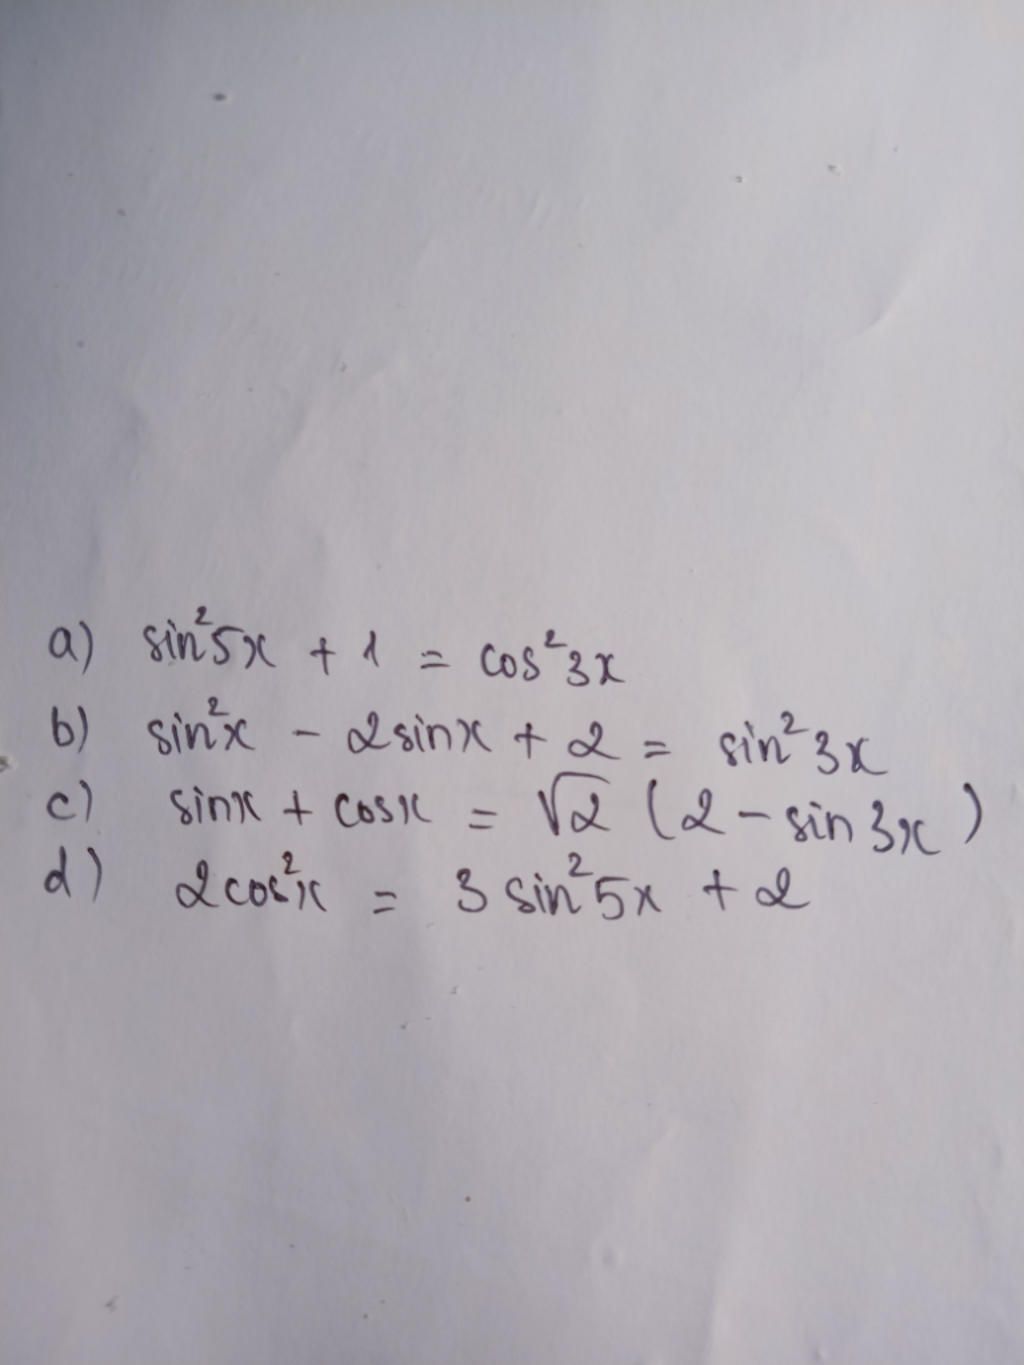 a) sin²5x + 1 = cos²3x
b) sin²x - 2sinx + 2 = sin²3x
c) sinx + cosx = √2 (2 - sin3x)
d) 2cos²x = 3 sin²5x + 2